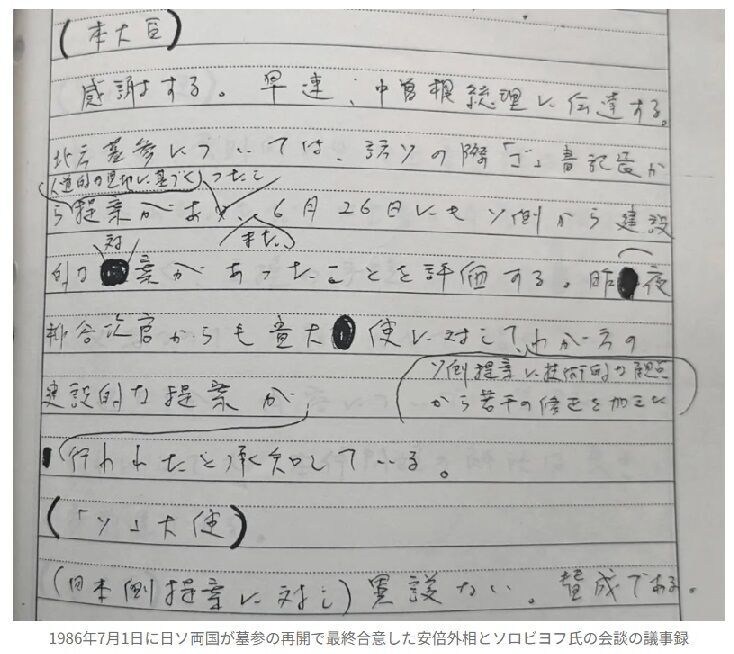 (本大臣)
感謝する。早速、中曽根総理に伝達する。
北方墓参については、訪ソの際「ゴ」書記長か
人道的な見地に基づくったこ
ら提案があり、6月26日にもソ側から建設
対 また、
的な案があったことを評価する。昨夜
柳谷次官からも貴大使に対して、わが方の
ソ側提案に技術的な観点
建設的な提案が
から若干の修正を加えに
行われたと承知している。
(「ソ」大使)
(日本側提案に対し)異議ない。賛成である。
1986年7月1日に日ソ両国が墓参の再開で最終合意した安倍外相とソロビヨフ氏の会談の議事録